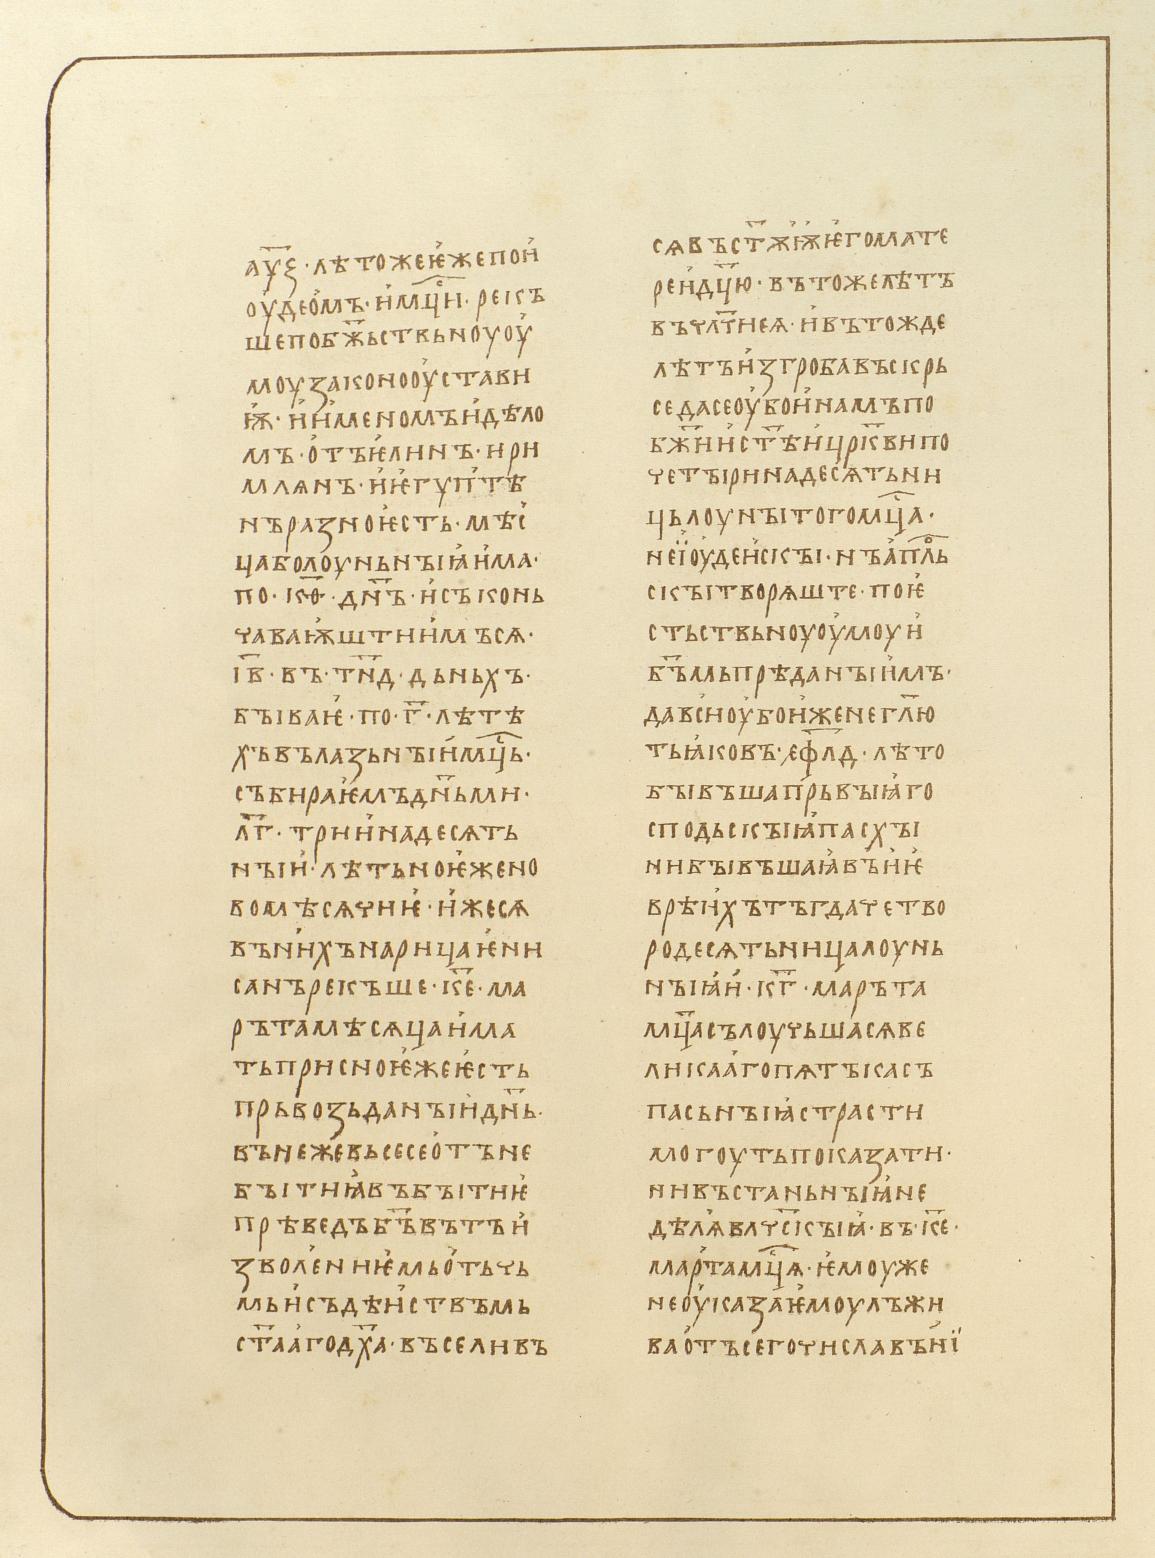 аѱѯ҃·лѣтожеѥ҆жепои҆
оу҆деѡ҆мъ·и҆мц҃и·рекъ
шепобж҃ьствьноуоу҆
моузаконооу҆стави
ѭ҆·и҆и҆меномъи҆дѣло
мъ·о҆тъѥ҆линъ·нри
млѧнъ·и҆ѥ҆гуп҆тѣ
нъразноѥ҆сть·мѣс҆ѧ
цаболоуньнъіꙗ҆и҆ма·
по·к҃ѳ·дн҃ъ·и҆съконь
чаваѭ҆штии҆мъсѧ·
і҃в·въ·т҃нд·дьньхъ·
бъіваѥ҆·по·г҃·лѣтѣ
хъвълазьнъіи҆мц҃ь·
събираѥ҆мъдн҃ьми·
л҃г·трии҆надесѧть
нъіи҆·лѣтьноѥ҆жено
вомѣсѧчиѥ҆·и҆жесѧ
въни҆хънарицаѥ҆ни
санърекъше·к҃е·ма
рътамѣсѧцаи҆ма
тьприсноѥ҆жеѥ҆сть
прьвозьданъіи҆дн҃ь·
вънежевьсесео҆тъне
бъітиꙗ҆въбъітиѥ҆
прѣведъб҃ъвътъи҆
зволениѥ҆мьо҆тьчь
мьи҆съдѣи҆ствъмь
ст҃аа҆годх҃а·въселивъ
сѧвъст҃ѫѭ҆ѥ҆гомате
реи҆дц҃ю·въТожелѣтъ
въчлч҃нсѧ·и҆вътожде
лѣтъи҆згробавъскрь
седасеоу҆бои҆намъпо
бж҃ии҆ст҃ѣи҆црк҃випо
четъіринадесѧтьни
цьлоунъітогомц҃а·
неїоу҆деи҆скъі·нъа҆пл҃ь
скъітворѧште·поѥ҆
стьствьноуоу҆моуи҆
б҃ъмьпрѣданъіи҆мъ·
давсноу҆бои҆женегл҃ю
тьꙗ҆ковъ·҂еф҃лд·лѣто
бъівъшапрьвыꙗ҆го
сподьскъіꙗ҆пасхъі
нибъівъшаꙗ҆въи҆ѥ҆
врѣи҆хътъгдачетво
родесѧтьницалоунь
нъіꙗ҆и҆·к҃г·маръта
мц҃асълоучьшасѧве
ликаа҆гопѧтъікасъ
пасьнъіꙗ҆страсти
могоутьпоказати·
нивъстаньнъіꙗ҆не
дѣлѧ҆влчс҃скъіꙗ·въ·к҃е·
мартамц҃ѧ·ѥ҆моуже
неоу҆казаѥ҆моулъжи
вао҆тъсегочиславъні҆ї